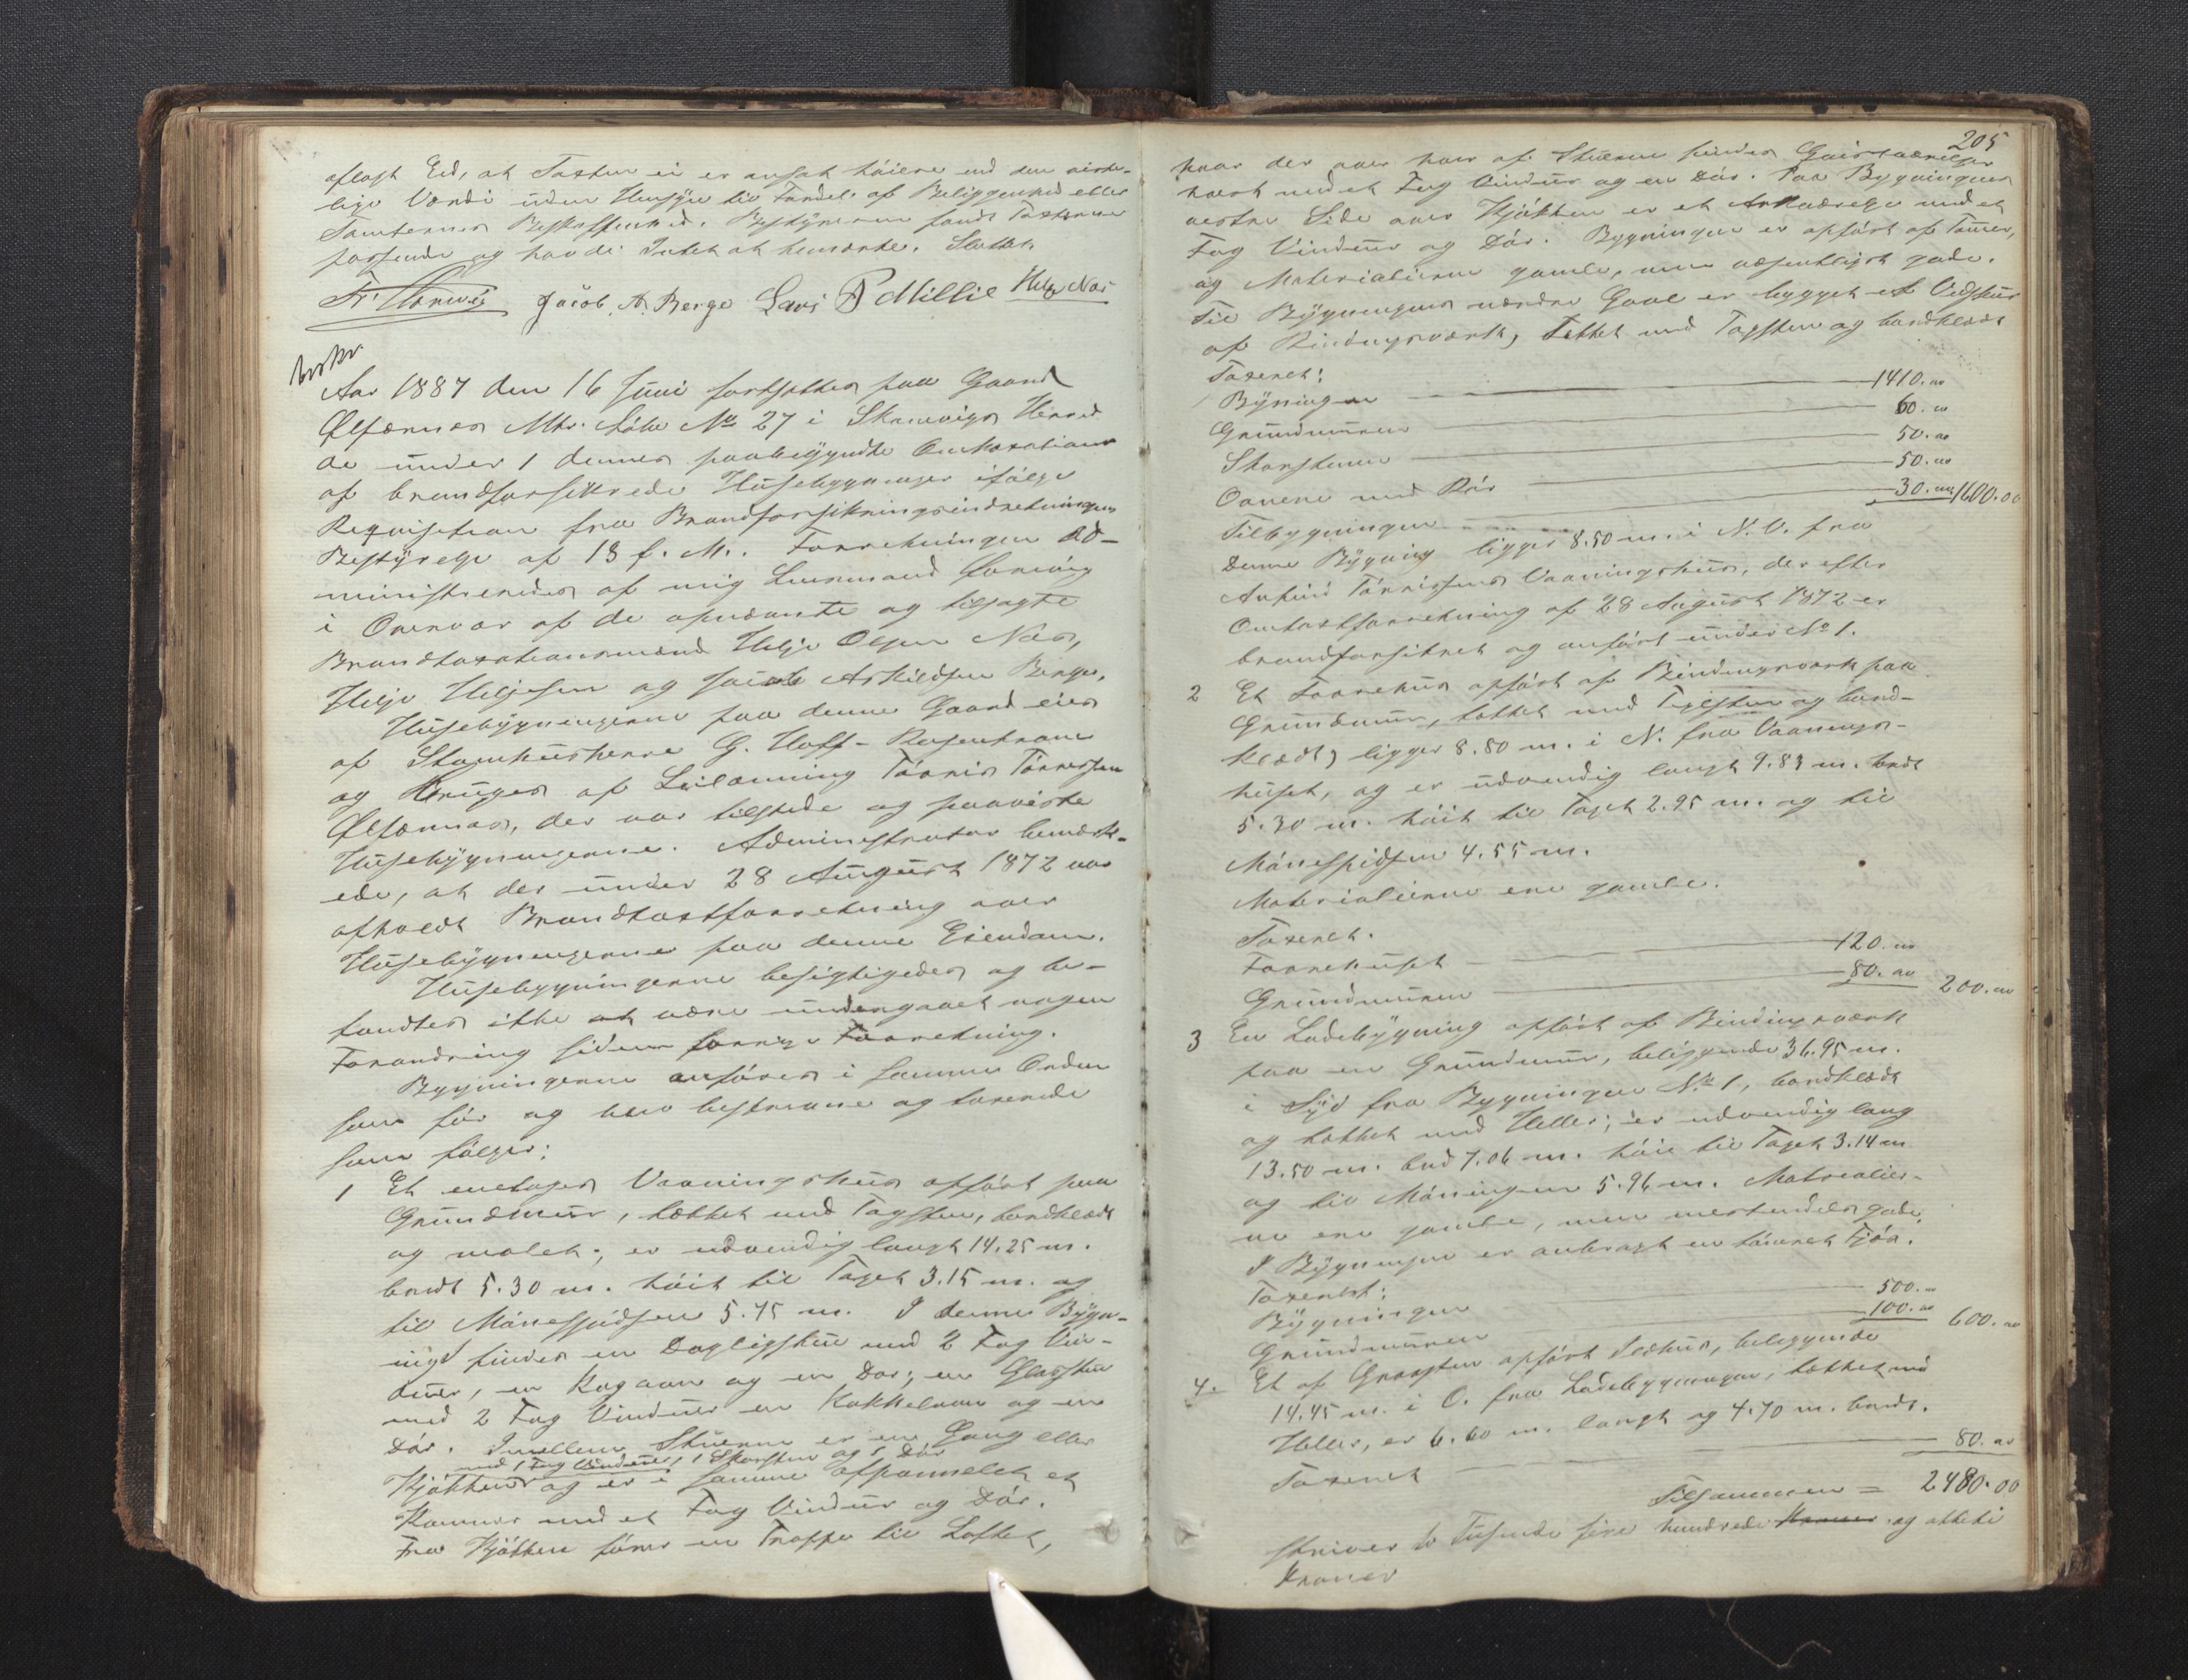 aflagt Eed, at Taxten ei er ansat høiere end den virke-
lige Værdi uden Hensyn til Fordel af Beliggenhed eller
Tomternes Beskaffenhed. Bestyreren fandt Taxterne
passende og havde Intet at bemærke. Sluttet.
Jacob A. Berge Lars P Millie Helje Næs
Aar 1887 den 16 Juni fortsattes paa Gaard
Ølfærnæs Mtr. Løbe No 27 i Skaanevigs Herred
de under 1 dennes paabegyndte Omtaxationer
af brandforsikrede Husebygninger ifølge
Requisition fra Brandforsikringsindretningens
Bestyrelse af 13 f. M. Forretningen Ad-
ministreredes af mig Lensmand
i Overvær af de opnævnte og tilsagte
Brandtaxationsmænd Helje Olsen Næs,
Helje Heljesen og Jacob Askildsen Berge.
Husebygningerne paa denne Gaard eies
af Stamhusherre G. Hoff-Rosenkrone
og bruges af Leilænning Tørris Tørrissen
Ølfærnæs, der var tilstede og paaviste
Husebygningerne. Administrator bemærk-
ede, at der under 28 August 1872 var
afholdt Brandtaxtforretning over
Husebygningerne paa denne Eiendom.
Husebygningerne besigtigedes og be-
fandtes ikke at være undergaaet nogen
Forandring siden forrige Forretning.
Bygningerne anføres i samme Orden
som før og blev beskrevne og taxerede
som følger:
1 Et enetages Vaaningshus opført paa
Grundmur, tækket med Tagsten, bordklædt
og malet; er udvendig langt 14.25 m.
bredt 5.30 m. høit til Taget 3.15 m. og
til Mønespidsen 5.75 m. I denne Bygn-
ingd findes en Dagligstue med 2 Fag Vin-
duer, en Kogovn og en Dør; en Glasstue
med 2 Fag Vinduer en Kakkelovn og en
Dør. Imellem Stuerne er en Gang eller
med 1 Fag Vinduer, 1 Skorsten og 1 Dør
Kjøkken og er i samme afpannelet et
Kammer med et Fag Vindue og Dør.
Fra Kjøkken fører en Trappe til Loftet,
205
hvor der over hver af Stuerne findes Gavlværelser
hvert med et Fag Vinduer og en Dør. Paa Bygningens
vestre Side over Kjøkken er et Arkværelse med et
Fag Vinduer og Dør. Bygningen er opført af Tømer,
og Materialierne gamle, men væsentligst gode.
Til Bygningens nordre Gavl er bygget et Vedskur
af Bindingsværk, tækket med Tagsten og bordklædt
Taxeret:
Bygningen 1410. 00
Grundmuren 60. 00
Skorstenen 50. 00
Ovnene med Rør 50. 00
Tilbygningen 30. 00 1600.00
Denne Bygning ligger 8.50 m. i N.O. fra
Anfind Tørrissens Vaaningshus, der efter
Omtaxtforretning af 28 August 1872 er
brandforsikret og anført under No 1.
2 Et Forrehus opført af Bindingsværk paa
Grundmur, tækket med Teglsten og bord-
klædt, ligger 8.80 m. i N. fra Vaanings-
huset, og er udvendig langt 9.83 m. bredt
5.30 m. høit til Taget 2.95 m. og til
Mønespidsen 4.55 m.
Materialierne ere gamle.
Taxeret.
Forrehuset 120. 00
Grundmuren 80. 00 200. 00
3 En Ladebygning opført af Bindingsværk
paa en Grundmur, beliggende 36.95 m.
i Syd fra Bygningen No 1, bordklædt
og tækket med Heller; er udvendig lang
13.50 m. bred 7.06 m. høi til Taget 3.14 m
og til Møningen 5.96 m. Materialier-
ne ere gamle, men mestendels gode.
I Bygningen er anbragt en tømret Fjøs.
Taxeret:
Bygningen 500. 00
Grundmuren 100. 00 600. 00
4. Et af Graasten opført Ildhus, beliggende
14.45 m. i O. fra Ladebygningen, tækket med
Heller, er 6.60 m. langt og 4.70 m. bredt.
Taxeret 80. 00
Tilsammen = 2480.00
skriver to Tusinde fire hundrede Kroner og otteti
Kroner